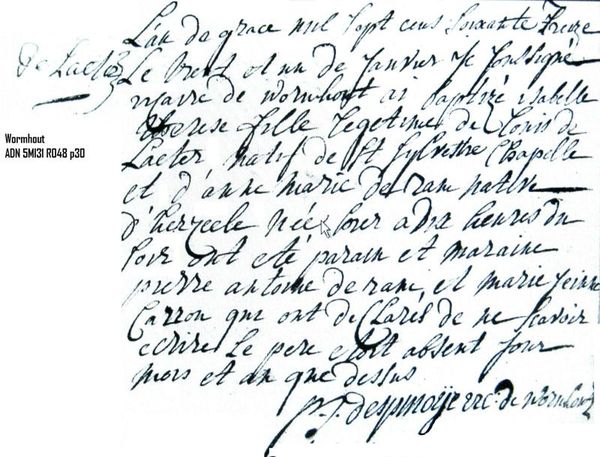 L'an de grace mil sept cens soixante treize
De Laeter
Le trent et un de janvier je soussigné
vicaire de wormhout ai baptizé isabelle
therese fille legetime de Louis de
Laeter natif de St Sylvestre Chapelle
et d'anne marie de ram native
d'herzeele née hier a dix heures du
soir ont eté parain et maraine
pierre antoine de ram, et marie jeinne
Carron qui ont declarés de ne scavoir
ecrire Le pere etoit absent jour
mois et an que dessus
Wormhout
ADN 5MI31 R048 p30
de wormhout